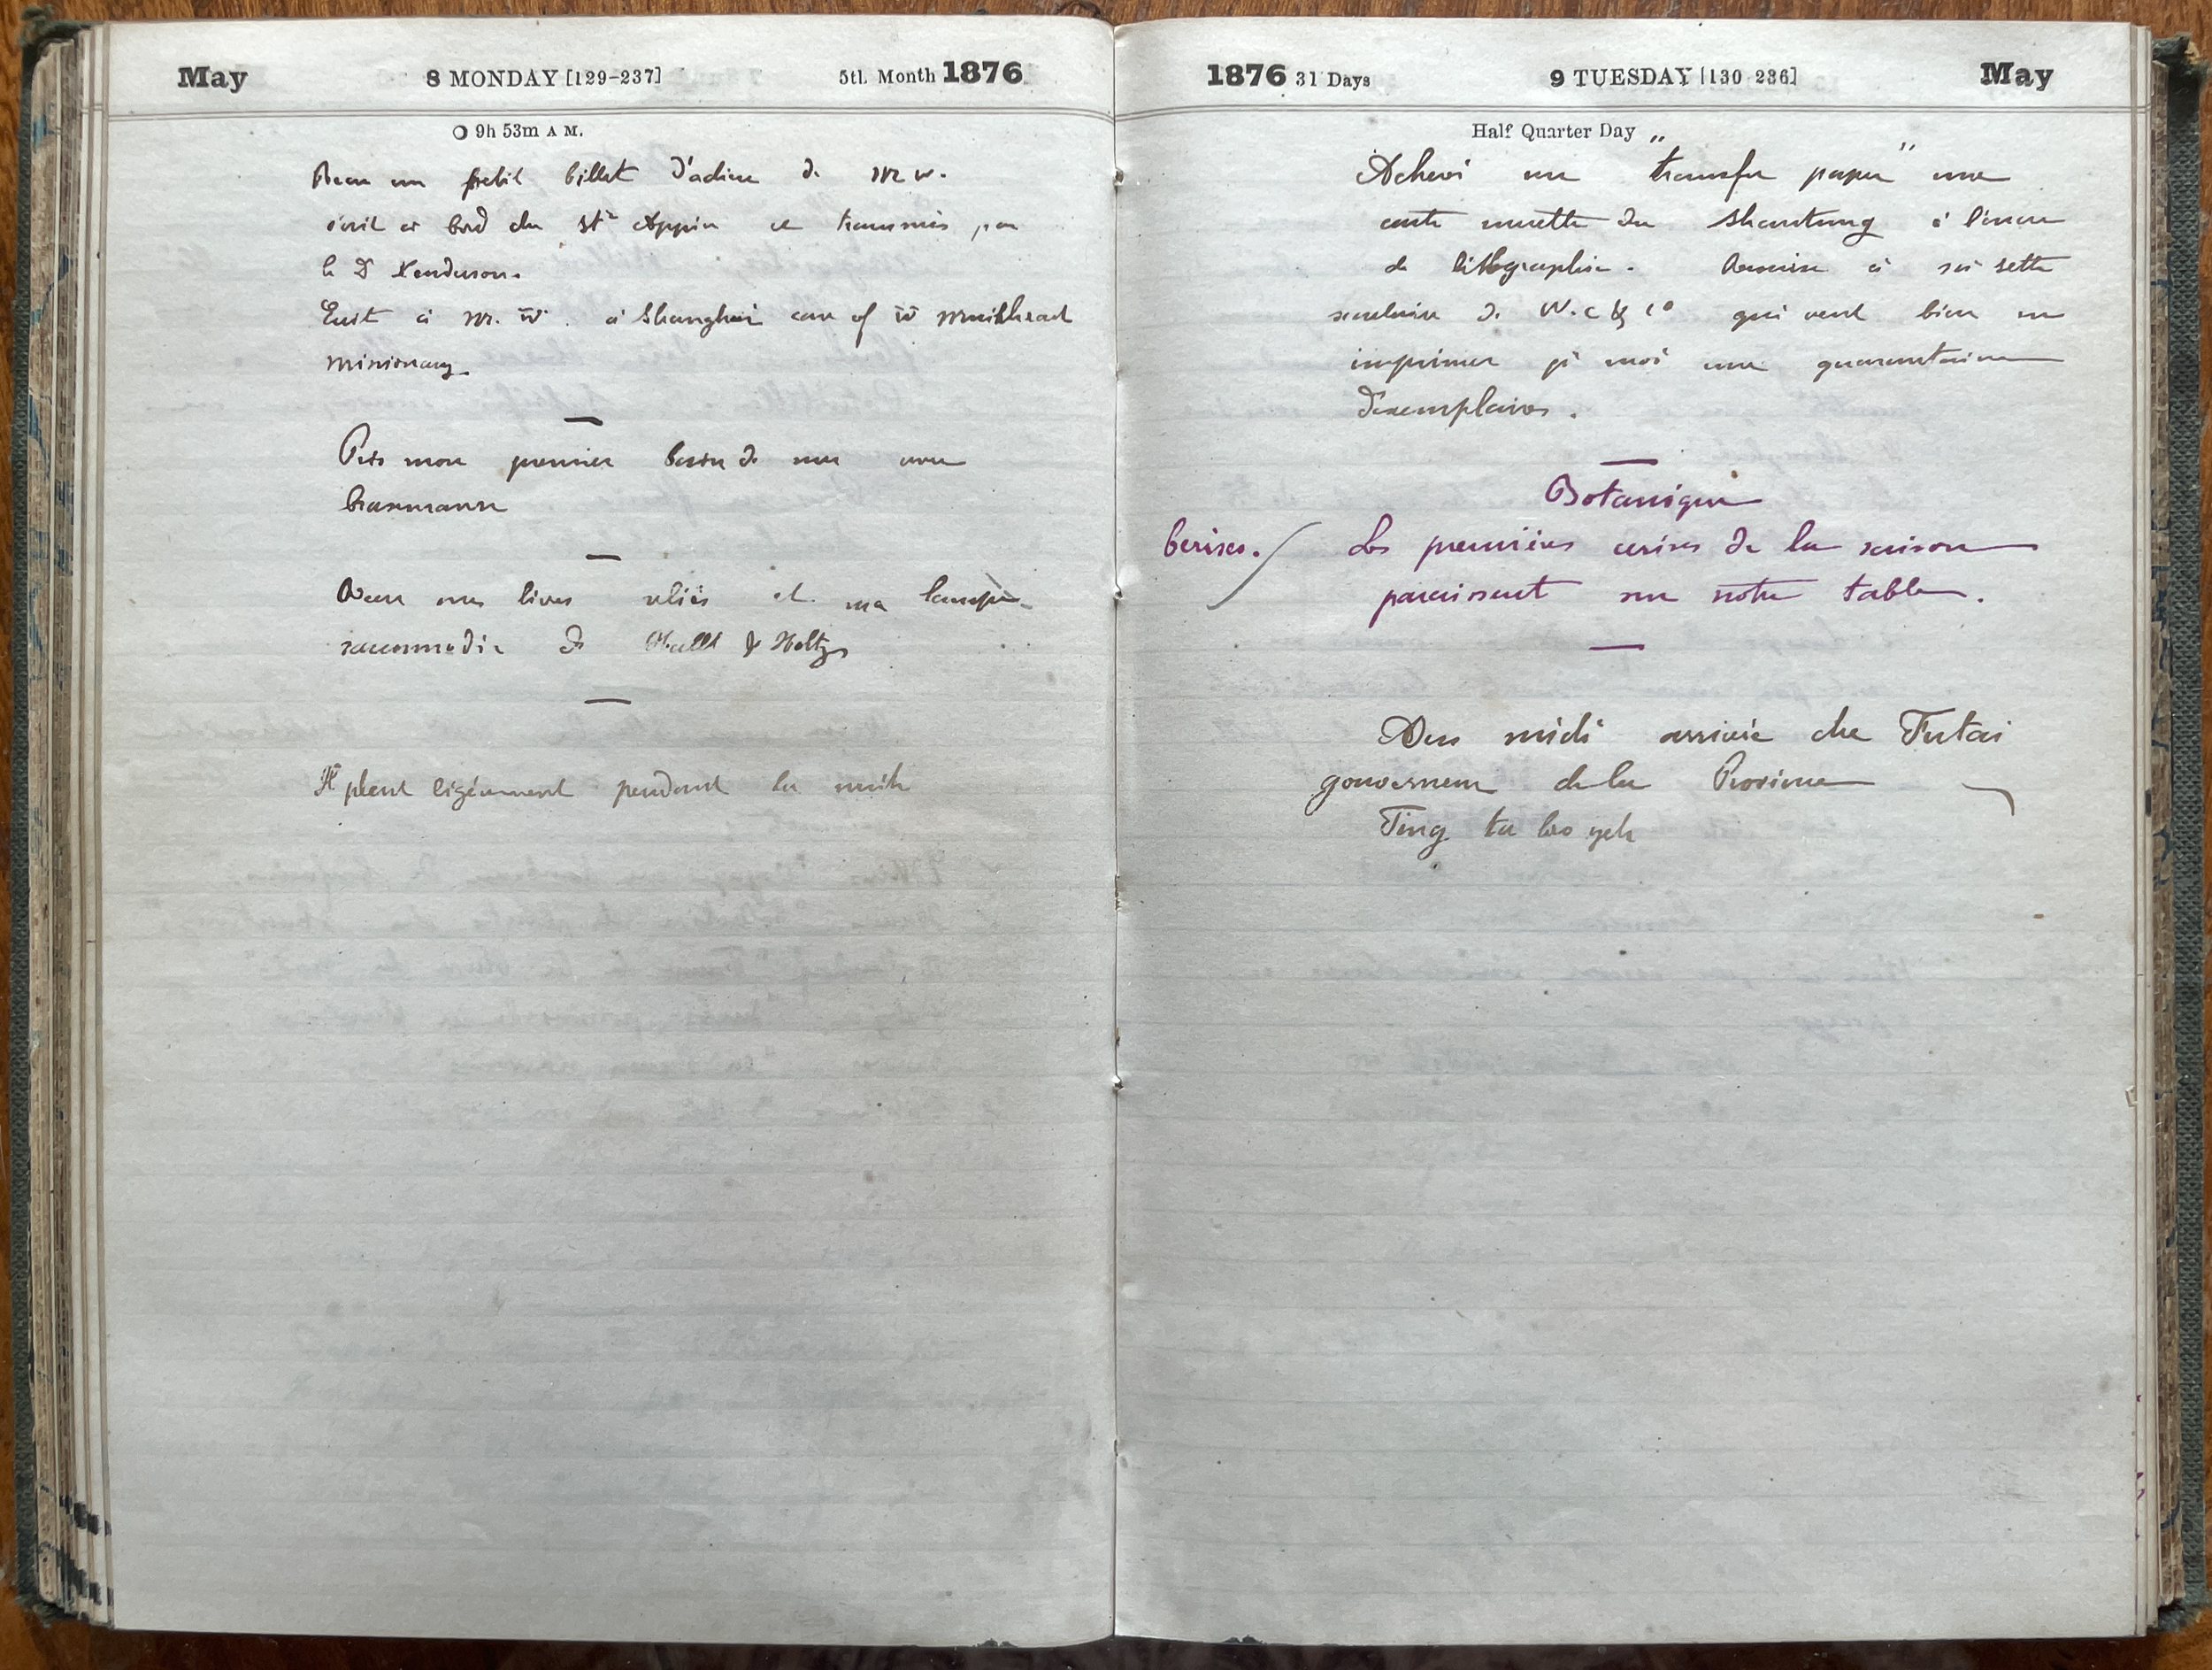 May 8 MONDAY [129-237] 5th Month 1876
9h 53m A M.
Recu un petit billet d'adieu de M W.
écrit à bord du Str Appin et transmis par
le Dr Henderson.
Ecrit à M. W. à Shanghai care of W Muirhead
missionary.
Pris mon premier bain de mer avec
Brasmann
Recu mes livres reliés et ma lampe
raccomodée de Hall & Holtz
Il pleut légèrement pendant la nuit
1876 31 Days 9 TUESDAY [130 236] May
Half Quarter Day
Achevé sur "transfer paper" une
carte muette du Shantung à l'encre
de lithographie. à
secretaire de W. C & Co qui veut bien m'en
imprimer pr moi une quarantaine
d'exemplaires.
Botanique
Cerises. Les premières cerises de la saison
paraissent sur notre table.
midi arrivée du Futai
gouverneur de la Province
Ting ta lao yeh